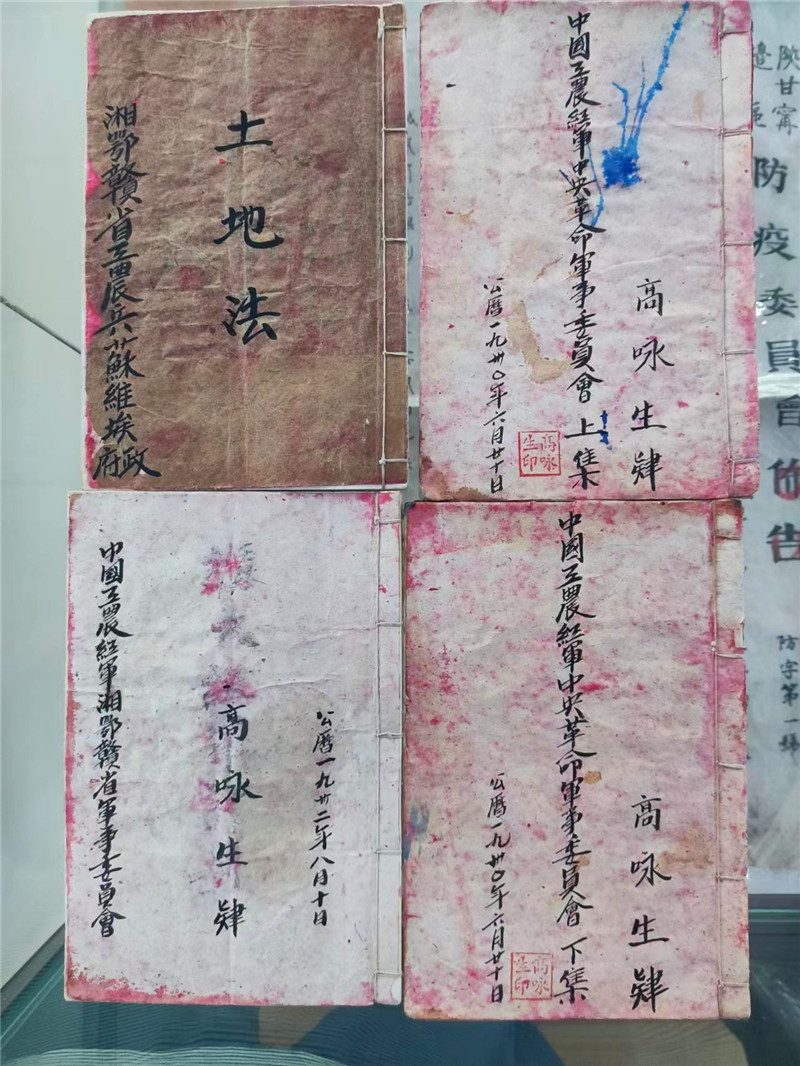 土地法
湘鄂贛省工農兵蘇維埃政府
高咏生肄
中國工農紅軍中央革命軍事委員會 上集
公曆一九卅〇年六月廿十日
高咏
生印
公曆一九卅二年八月十日
高咏生肄
中國工農紅軍湘鄂贛省軍事委員會
高咏生肄
中國工農紅軍中央革命軍事委員會 下集
公曆一九卅〇年六月廿十日
高咏
生印
陝甘甯
邊區
防疫委員會佈告
防字第一號